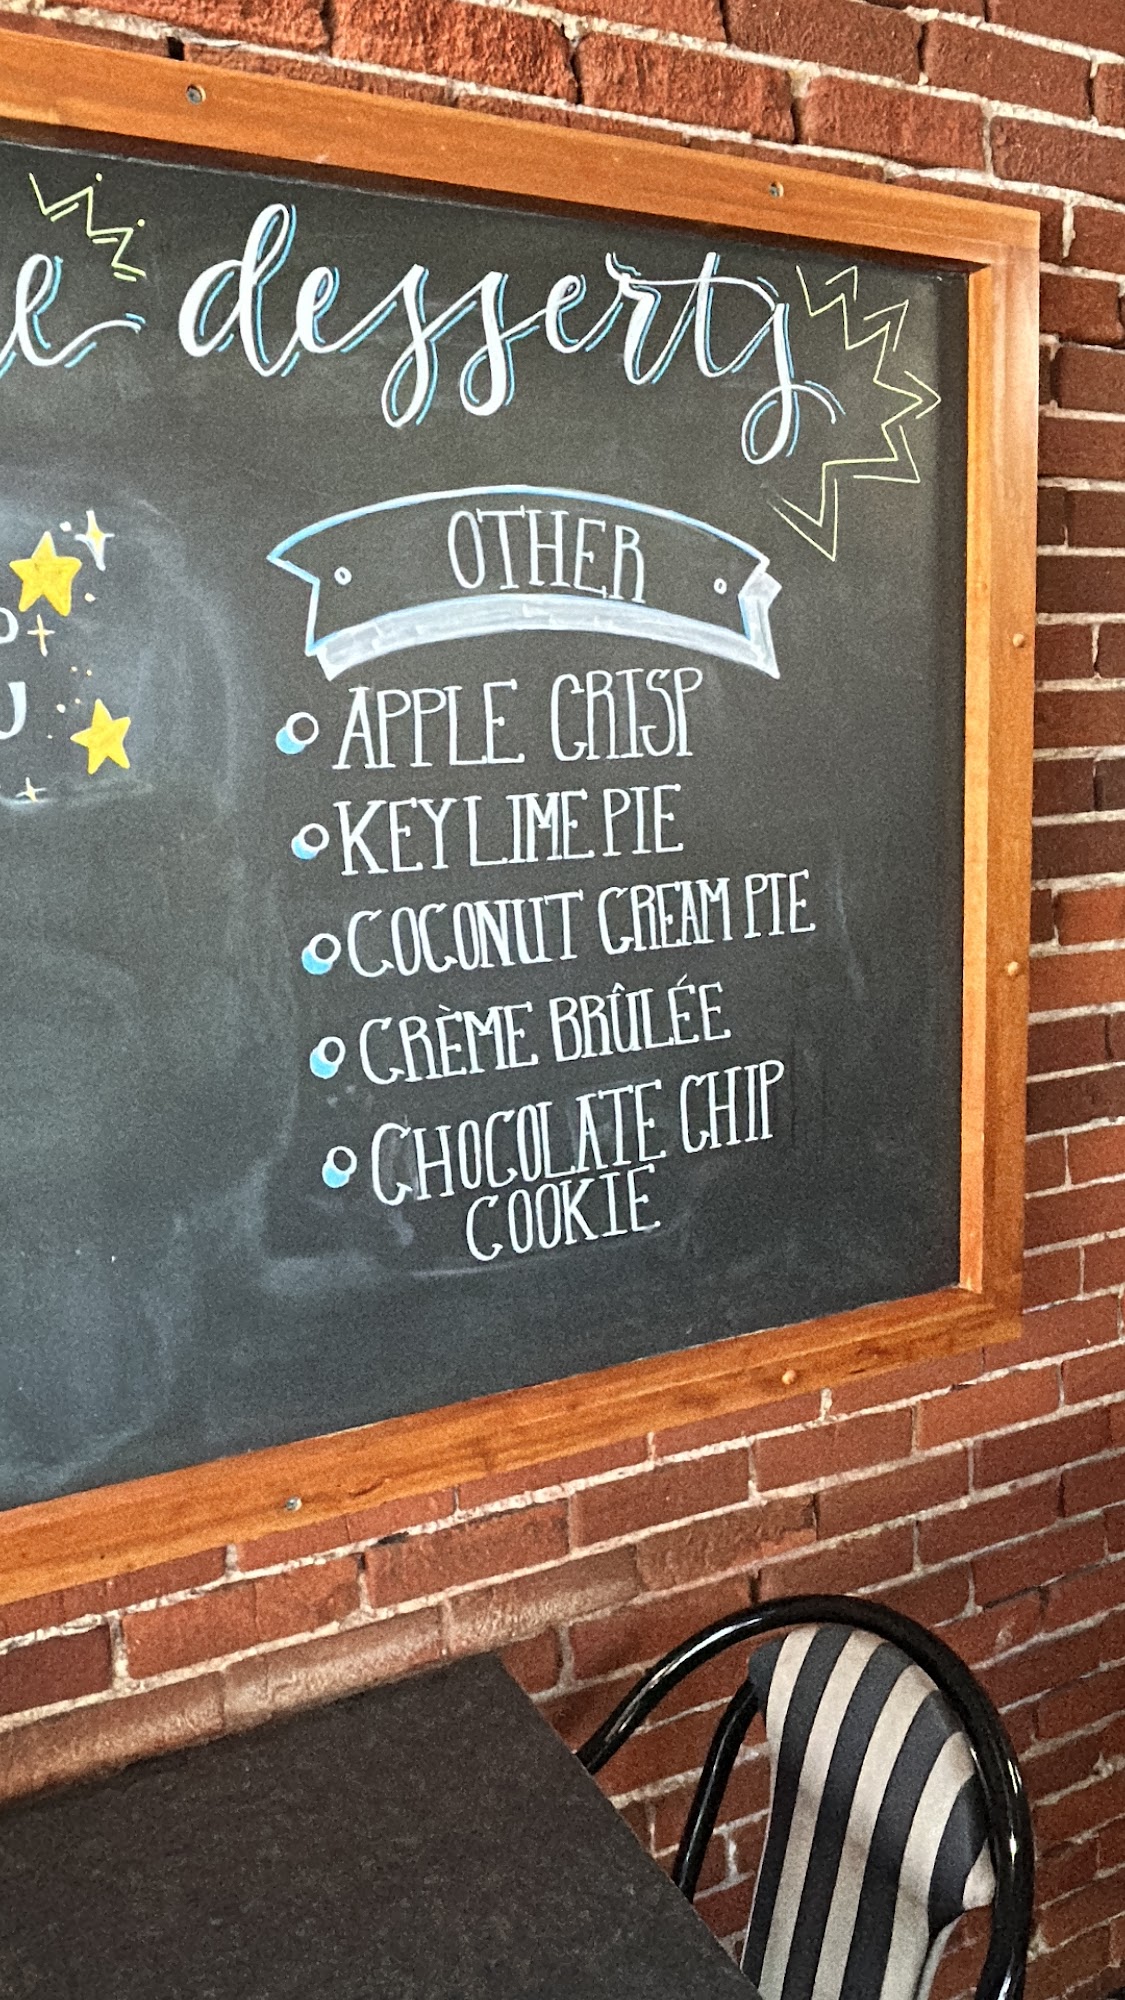 desserts
OTHER
APPLE CRISP
KEY LIME PIE
COCONUT CREAM PIE
CRÈME BRÛLÉE
CHOCOLATE CHIP
COOKIE